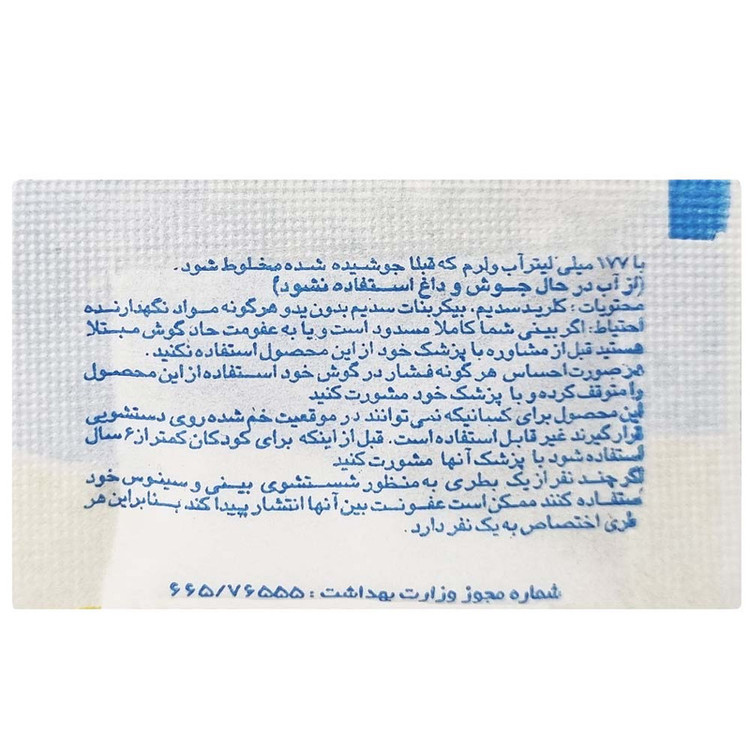 با ۱۷۷ میلی لیتر آب ولرم که قبلا جوشیده شده مخلوط شود.
(از آب در حال جوش و داغ استفاده نشود)
محتویات: کلرید سدیم، بیکربنات سدیم بدون یدو هرگونه مواد نگهدارنده
احتیاط: اگر بینی شما کاملا مسدود است و یا به عفومت حاد گوش مبتلا
هستید قبل از مشاوره با پزشک خود از این محصول استفاده نکنید.
هر صورت احساس هر گونه فشار در گوش خود استفاده از این محصول
را متوقف کرده و با پزشک خود مشورت کنید
این محصول برای کسانیکه نمی توانند در موقعیت خم شده روی دستشویی
قرار گیرند غیر قابل استفاده است. قبل از اینکه برای کودکان کمتر از ۶ سال
استفاده شود با پزشک آنها مشورت کنید
اگر چند نفر از یک بطری به منظور شستشوی بینی و سینوس خود
ستفاده کنند ممکن است عفونت بین آنها انتشار پیدا کند بنابراین هر
طری اختصاص به یک نفر دارد.
شماره مجوز وزارت بهداشت: ۶۶۵/۷۶۵۵۵